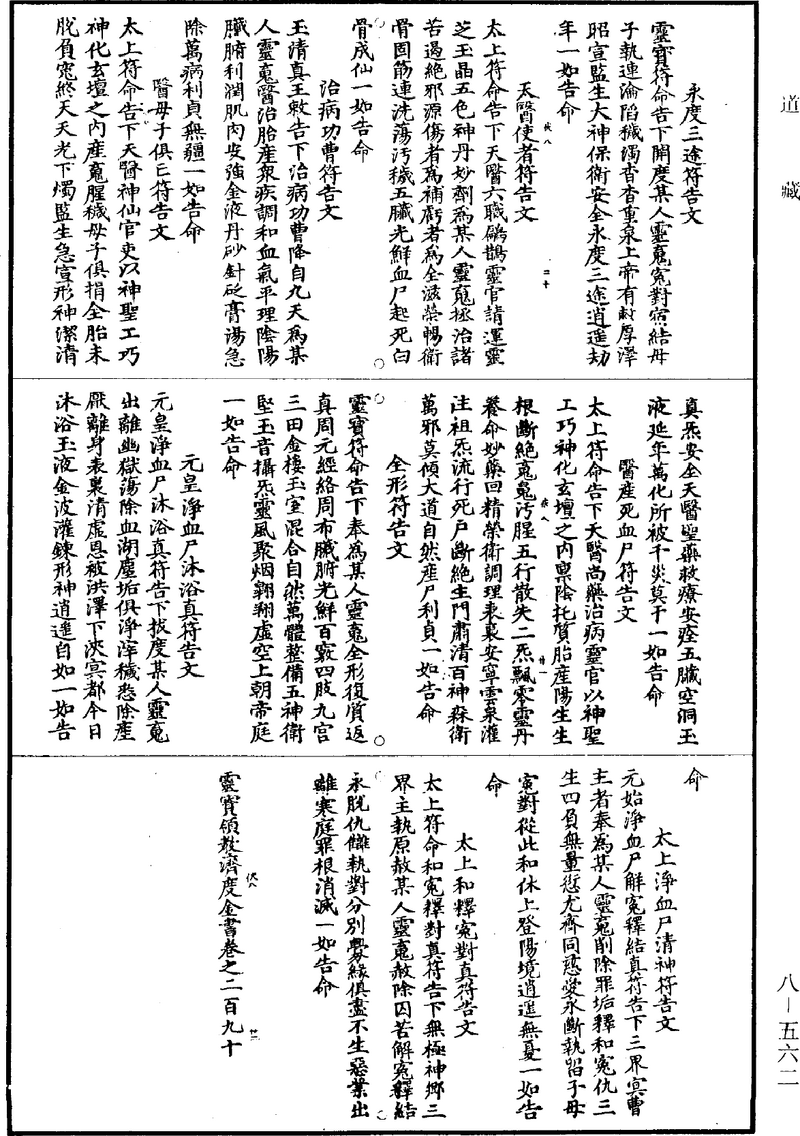 道藏
永度三途符告文
靈寶符命告下開度某人靈䰟寃對宿結母
子執連淪蹈穢濁杳杳重泉上帝有敕厚澤
昭宣監生大神保衛安全永度三途逍遥劫
年一如告命
天醫使者符告文
太上符命告下天醫六職鶣鵲靈官請運靈
芝玉晶五色神丹妙劑為某人靈䰟拯治諸
苦遏絶邪源傷者為補虧者為全滋榮暢衛
骨固筋連洗蕩汚穢五臟光鮮血尸起死白
骨成仙一如告命
治病功曹符告文
玉清真王敕告下治病功曹降自九天為某
人靈䰟醫治胎產衆疾調和血氣平理陰陽
臟腑利潤肌肉安強金液丹砂針砭膏湯急
除萬病利貞無疆一如告命
醫母子俱亡符告文
太上符命告下天醫神仙官吏以神聖工巧
神化玄壇之内產䰟腥穢母子俱捐全胎未
脱負寃終天天光下燭監生急宣形神潔清
真炁安全天醫聖藥救療安痊五臟空洞玉
液延年萬化所被千災莫干一如告命
醫產死血尸符告文
太上符命告下天醫尚藥治病靈官以神聖
工巧神化玄壇之内禀陰托質胎產陽生生
根斷絶寃䰟汚腥五行散失二炁飄零靈丹
養命妙藥回精榮衛調理表裏安寧雲泉灌
注祖炁流行死尸斷絶生門肅清百神森衛
萬邪莫傾大道自然產尸利貞一如告命
全形符告文
靈寶符命告下奉為某人靈䰟全形復質返
真周元經絡周布臟腑光鮮百竅四肢九宫
三田金樓玉室混合自然萬體整備五神衛
堅玉音攝炁靈風聚烟翱翔虚空上朝帝庭
一如告命
元皇淨血尸沐浴真符告文
元皇淨血尸沐浴真符告下拔度某人靈䰟
出離幽獄蕩除血湖塵垢俱淨滓穢悉除產
厭離身表裏清虚恩被洪澤下浹冥都今日
沐浴玉液金波灌鍊形神逍遥自如一如告
命
太上淨血尸清神符告文
元始淨血尸解寃釋結真符告下三界冥曹
主者奉為某人靈䰟削除罪垢釋和寃仇三
生四負無量愆尤齊同慈愛永斷執留子母
寃對從此和休上登陽境逍遥無憂一如告
命
太上和釋寃對真符告文
太上符命和寃釋對真符告下無極神鄉三
界主執原赦某人靈䰟赦除囚苦解寃釋結
永脱仇讎執對分別孽緣俱盡不生惡業出
離寒庭罪根消滅一如告命
靈寶領教濟度金書卷之二百九十
八—五六二